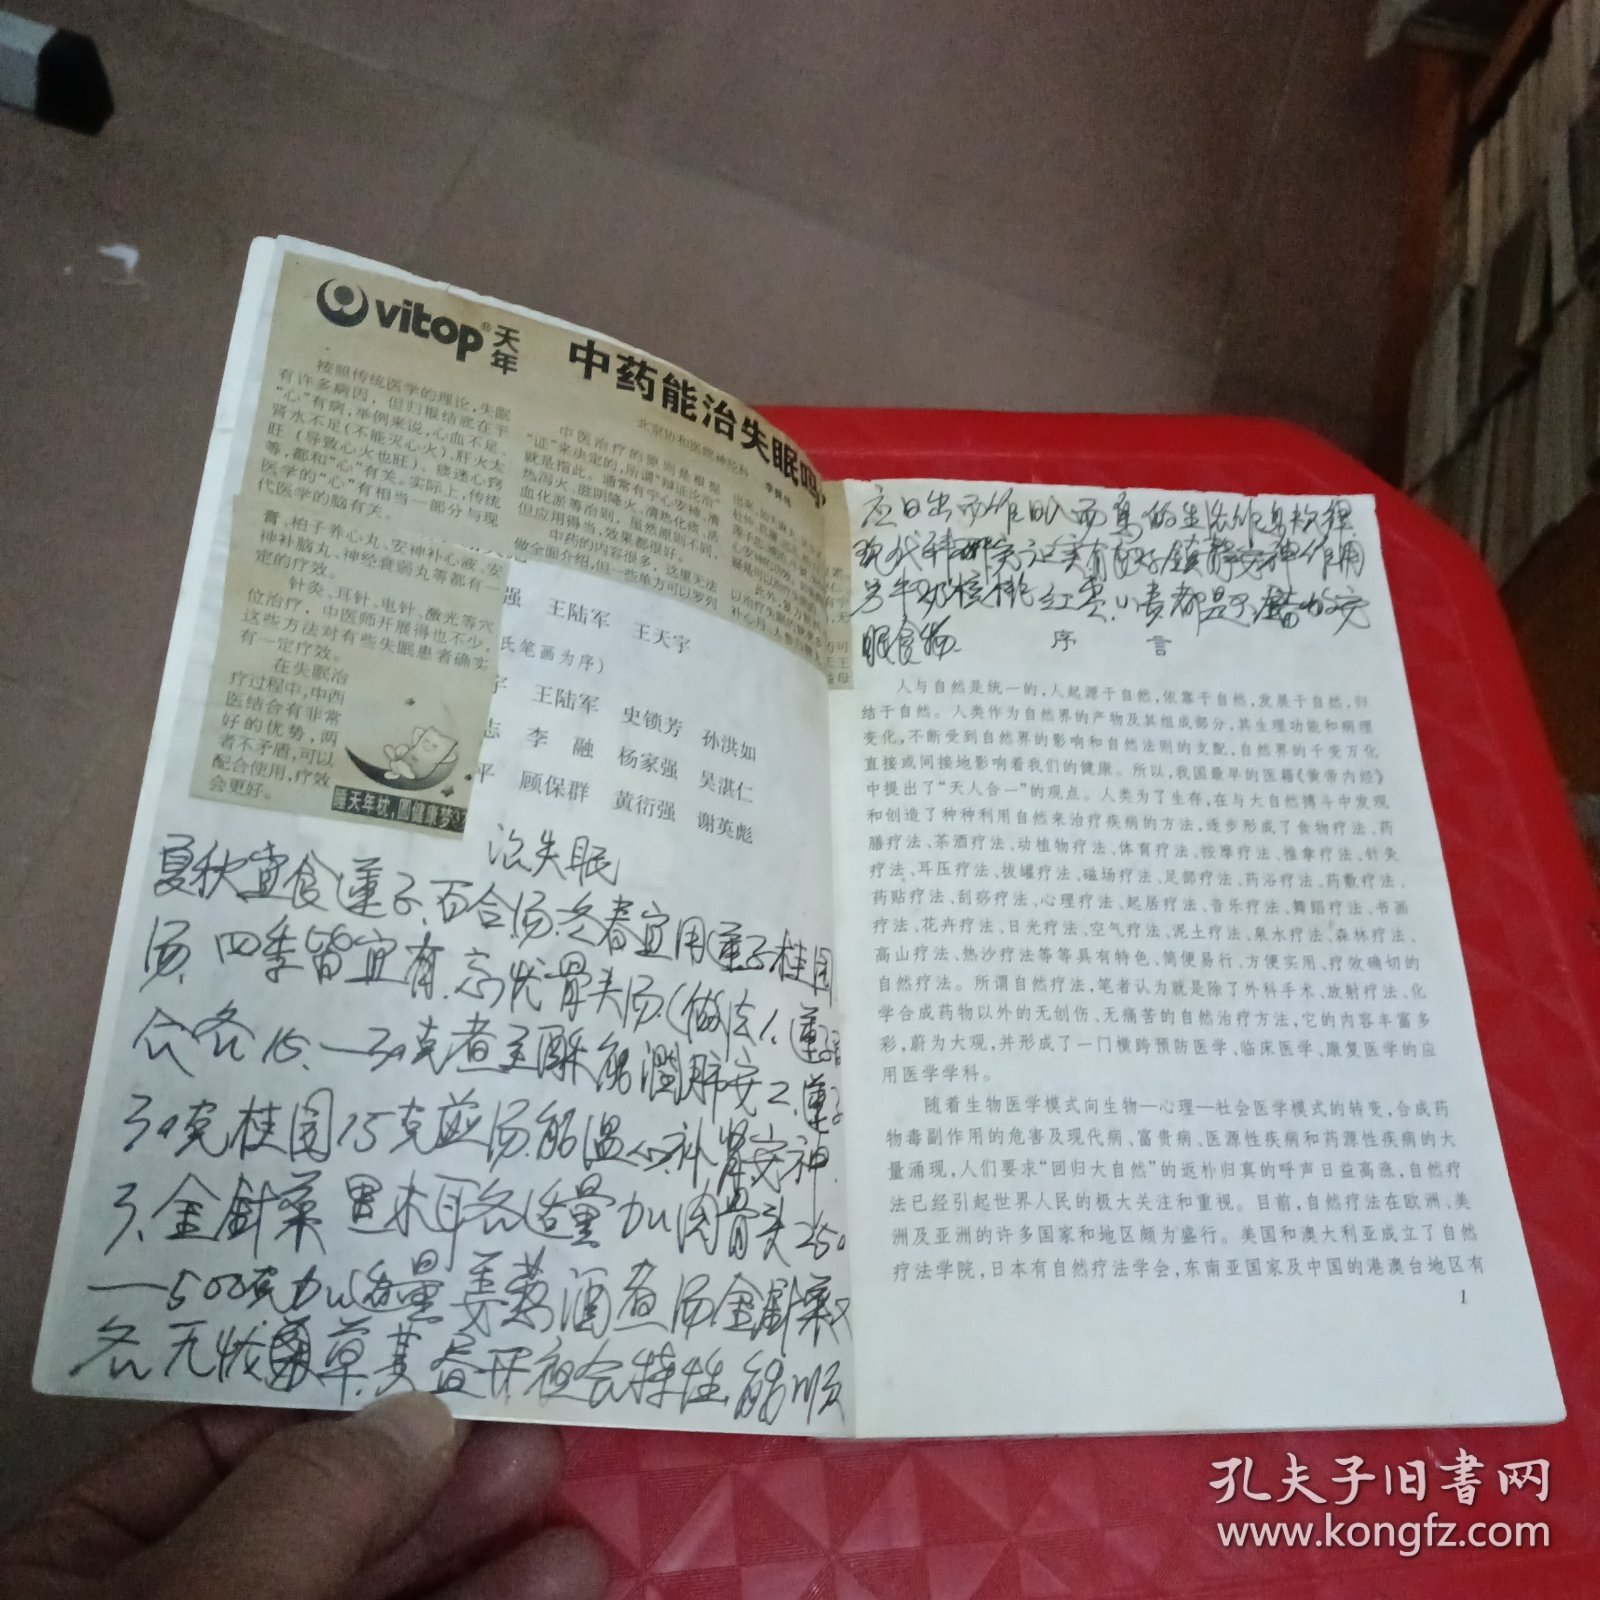 vitop®天年
中药能治失眠吗?
北京协和医院神经科
按照传统医学的理论,失眠
有许多病因,但归根结底在于
“心”有病,举例来说,心血不足、
肾水不足(不能灭心火)、肝火太
旺(导致心火也旺)、痰迷心窍
等,都和“心”有关。实际上,传统
医学的“心”有相当一部分与现
代医学的脑有关。
中医治疗的原则是根据
“证”来决定的,所谓“辩证论治”
就是指此。通常有宁心安神、清
热泻火、滋阴降火、清热化痰、活
血化淤等治则,虽然原则不同,
但应用得当,效果都很好。
中药的内容很多,这里无法
做全面介绍,但一些单方可以罗列
膏、柏子养心丸、安神补心液、安
神补脑丸、神经衰弱丸等都有一
定的疗效。
针灸、耳针、电针、激光等穴
位治疗,中医师开展得也不少,
这些方法对有些失眠患者确实
有一定疗效。
在失眠治
疗过程中,中西
医结合有非常
好的优势,两
者不矛盾,可以
配合使用,疗效
会更好。
睡天年枕,圆健康梦
强 王陆军 王天宇
氏笔画为序)
字 王陆军 史锁芳 孙洪如
志 李融 杨家强 吴湛仁
平 顾保群 黄衍强 谢英彪
治失眠
夏秋宜食莲子百合汤.冬春宜用莲子桂园
汤.四季皆宜有.忘忧骨头汤.(做法1.莲子
合各15.—30克煮至酥能潤肺安2.莲子
30克桂园15克煎汤.能温心补肾安神.
3.金針菜黑木耳各适量加肉骨头250
—500克加适量姜葱酒煮汤金針菜又
名无忧草.其昼开夜合特性.能顺
应日出而作日入而息的生活作息规律
眠食物.
序 言
人与自然是统一的,人起源于自然,依靠于自然,发展于自然,归
结于自然。人类作为自然界的产物及其组成部分,其生理功能和病理
变化,不断受到自然界的影响和自然法则的支配,自然界的千变万化
直接或间接地影响着我们的健康。所以,我国最早的医籍《黄帝内经》
中提出了“天人合一”的观点。人类为了生存,在与大自然搏斗中发现
和创造了种种利用自然来治疗疾病的方法,逐步形成了食物疗法、药
膳疗法、茶酒疗法、动植物疗法、体育疗法、按摩疗法、推拿疗法、针灸
疗法、耳压疗法、拔罐疗法、磁场疗法、足部疗法、药浴疗法、药敷疗法、
药贴疗法、刮痧疗法、心理疗法、起居疗法、音乐疗法、舞蹈疗法、书画
疗法、花卉疗法、日光疗法、空气疗法、泥土疗法、泉水疗法、森林疗法、
高山疗法、热沙疗法等等具有特色、简便易行、方便实用、疗效确切的
自然疗法。所谓自然疗法,笔者认为就是除了外科手术、放射疗法、化
学合成药物以外的无创伤、无痛苦的自然治疗方法,它的内容丰富多
彩,蔚为大观,并形成了一门横跨预防医学、临床医学、康复医学的应
用医学学科。
随着生物医学模式向生物—心理—社会医学模式的转变,合成药
物毒副作用的危害及现代病、富贵病、医源性疾病和药源性疾病的大
量涌现,人们要求“回归大自然”的返朴归真的呼声日益高涨,自然疗
法已经引起世界人民的极大关注和重视。目前,自然疗法在欧洲、美
洲及亚洲的许多国家和地区颇为盛行。美国和澳大利亚成立了自然
疗法学院,日本有自然疗法学会,东南亚国家及中国的港澳台地区有
1
孔夫子旧书网
www.kongfz.com